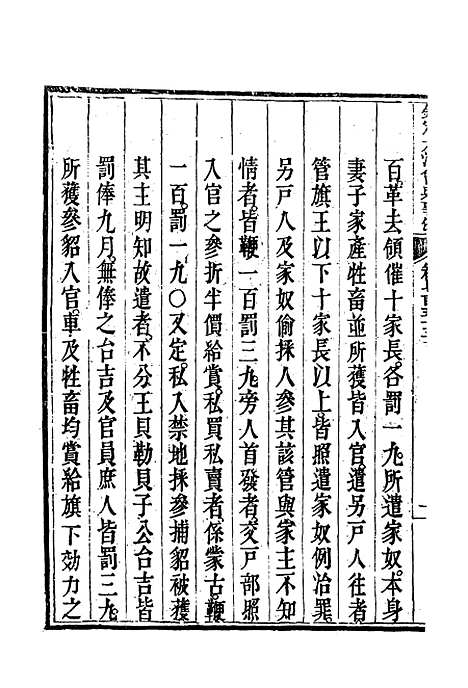 百革去領催十家長各罰一九所遣家奴本身
妻子家產牲畜並所獲皆入官遣另戶人往者
管旗王以下十家長以上皆照遣家奴例治罪
另戶人及家奴偷採人參其該管與家主不知
情者皆鞭一百罰三九旁人首發者交戶部照
入官之參折半價給賞私買私賣者係蒙古鞭
一百罰一九○又定私入禁地採參捕貂被獲
其主明知故遣者不分王貝勒貝子公台吉皆
罰俸九月無俸之台吉及官員庶人皆罰三九
所獲參貂入官車及牲畜均賞給旗下効力之